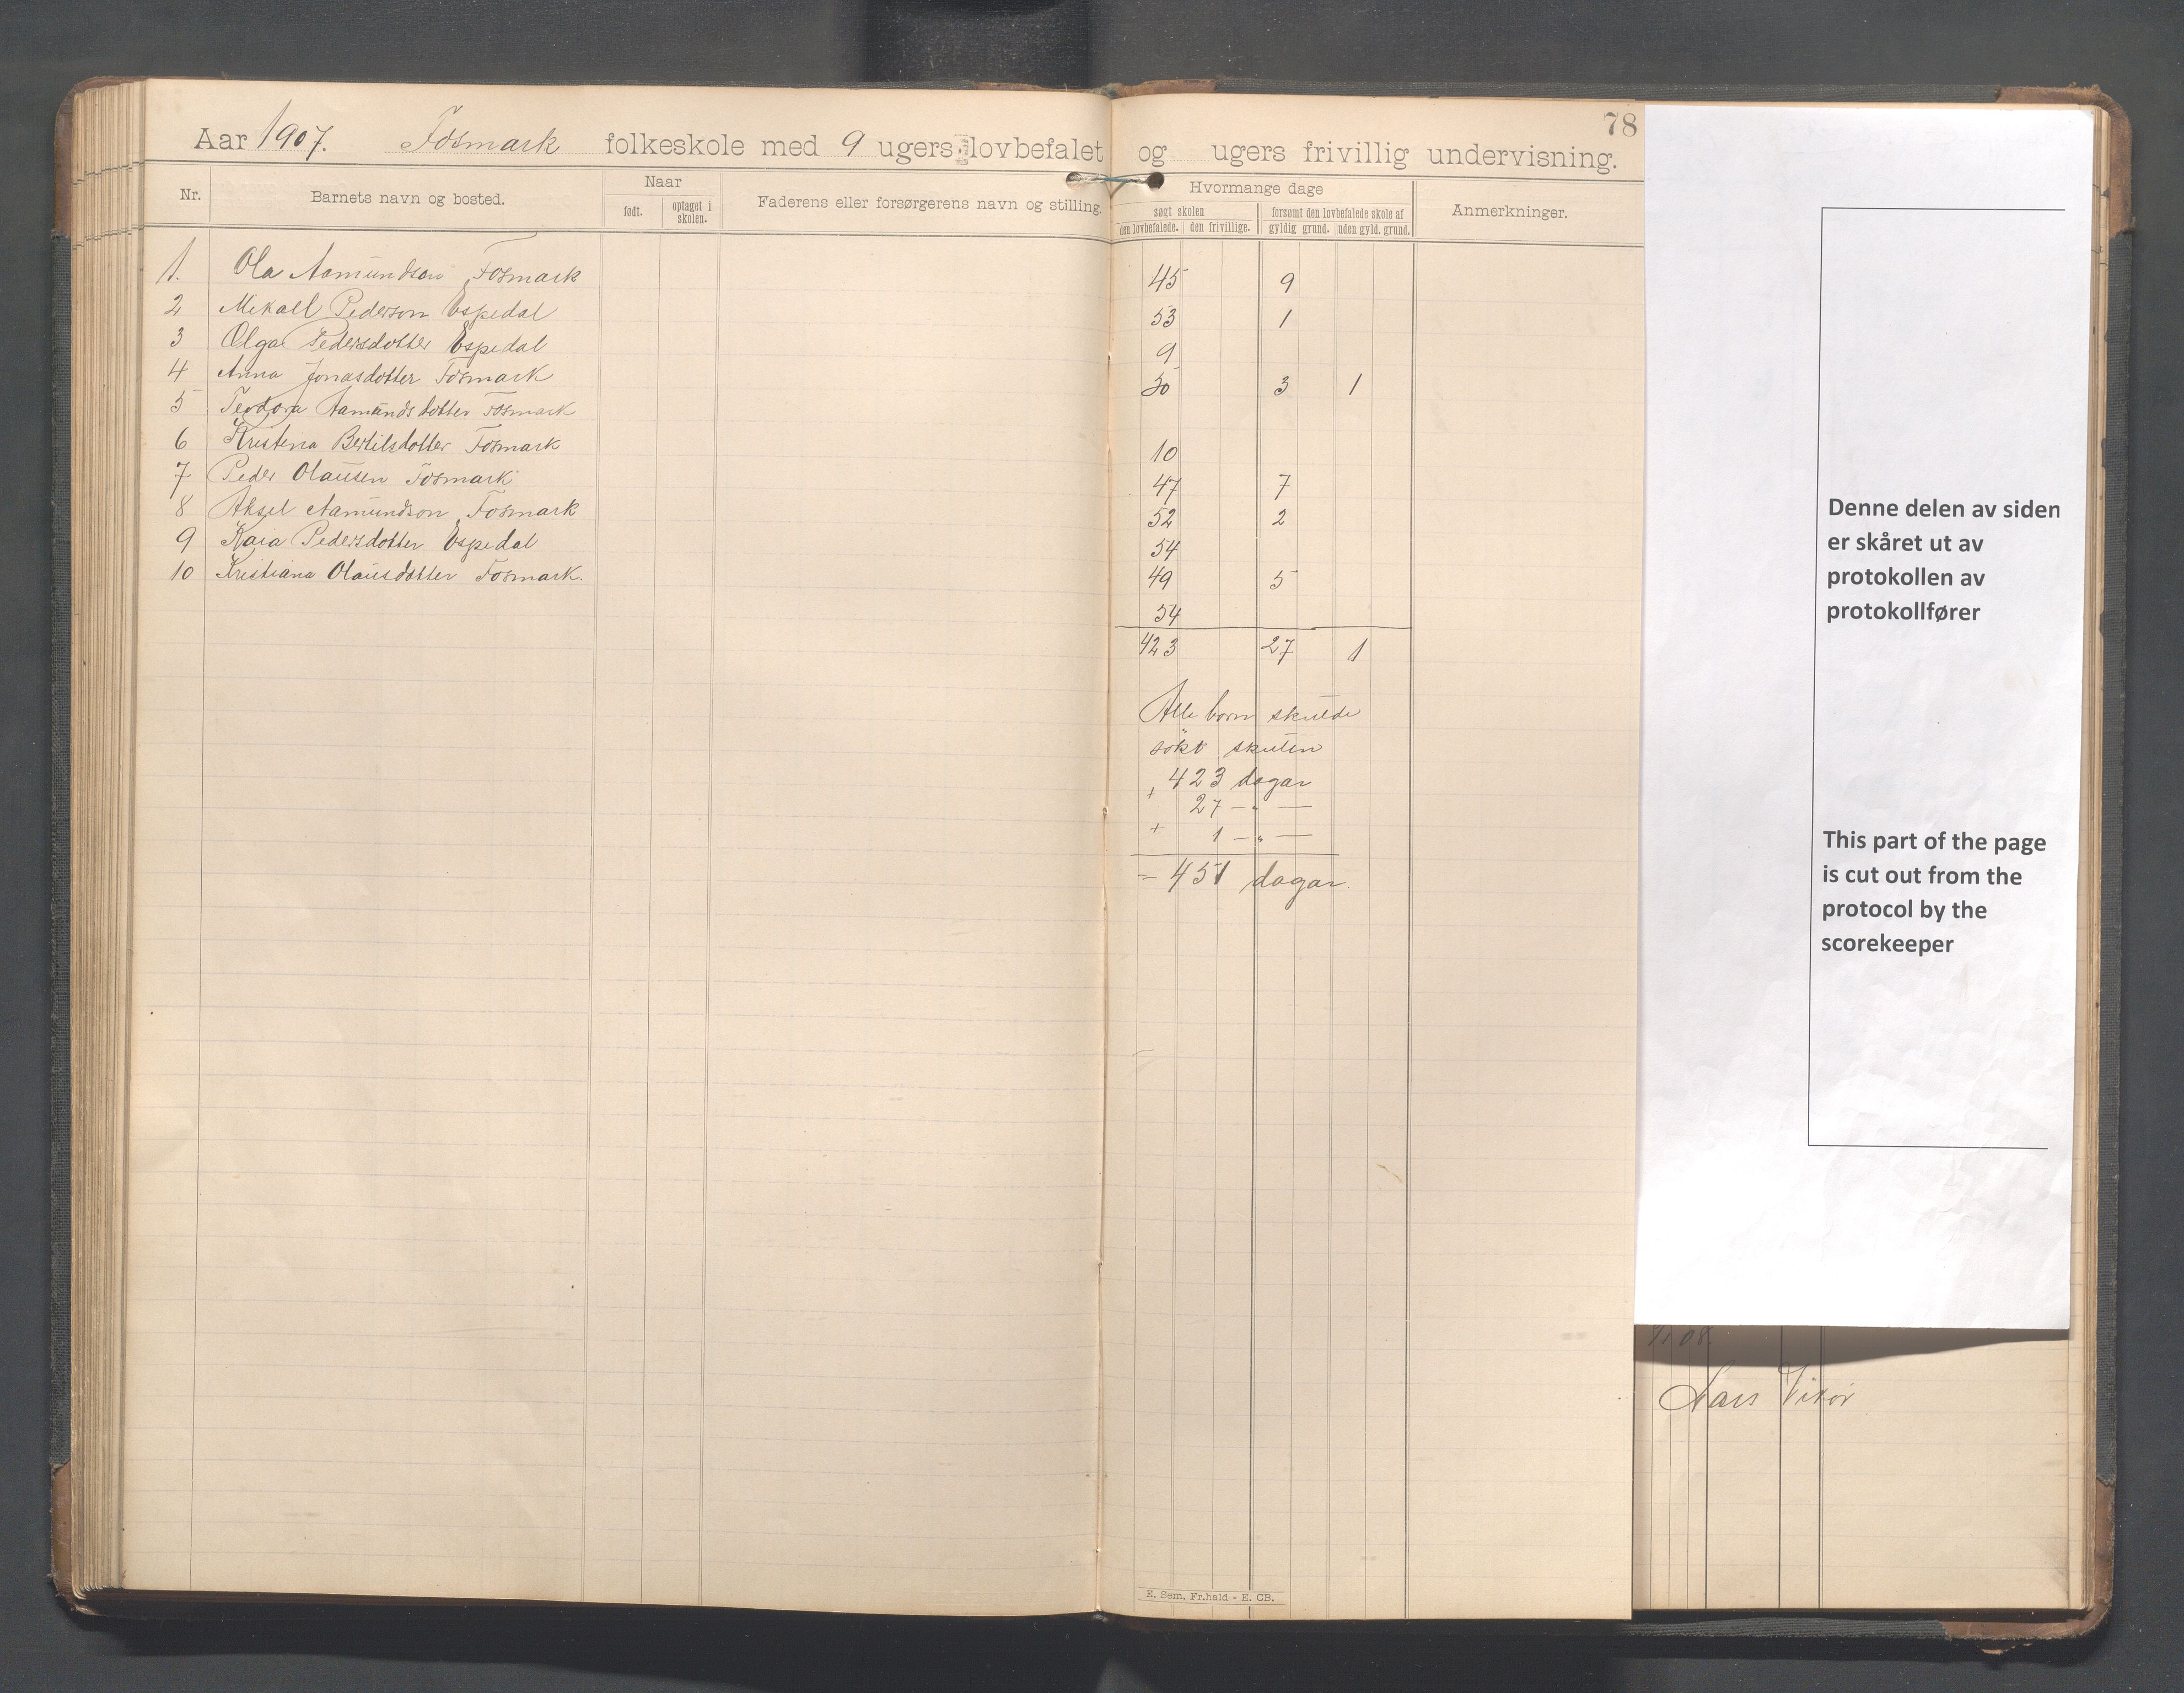 78
Aar 1907. Fosmark folkeskole med 9 ugers lovbefalet og ugers frivillig undervisning.
Nr. Barnets navn og bosted. Naar født. optaget i skolen. Faderens eller forsørgerens navn og stilling. Hvormange dage søgt skolen den lovbefalede. den frivillige. forsømt den lovbefalede skole af gyldig grund. uden gyld. grund. Anmerkninger.
1. Ola Aamundson Fosmark 45 9
2 Mikall Pederson Espedal 53 1
3 Olga Pedersdotter Espedal 9
4 Anna Jonasdotter Fosmark 50 3 1
5 Teodora Aamundsdotter Fosmark
6 Kristina Bertilsdotter Fosmark 10
7 Peder Olausen Fosmark 47 7
8 Aksel Aamundson Fosmark 52 2
9 Kaia Pedersdotter Espedal 54
10 Kristiana Olausdotter Fosmark. 49 5
54
423 27 1
Alle born skulde
søkt skulen
423 dagar
+ 27 — " —
+ 1 — " —
= 451 dagar.
E. Sem, Fr.hald - E. CB.
Denne delen av siden
er skåret ut av
protokollen av
protokollfører
This part of the page
is cut out from the
protocol by the
scorekeeper
Lars Vikør